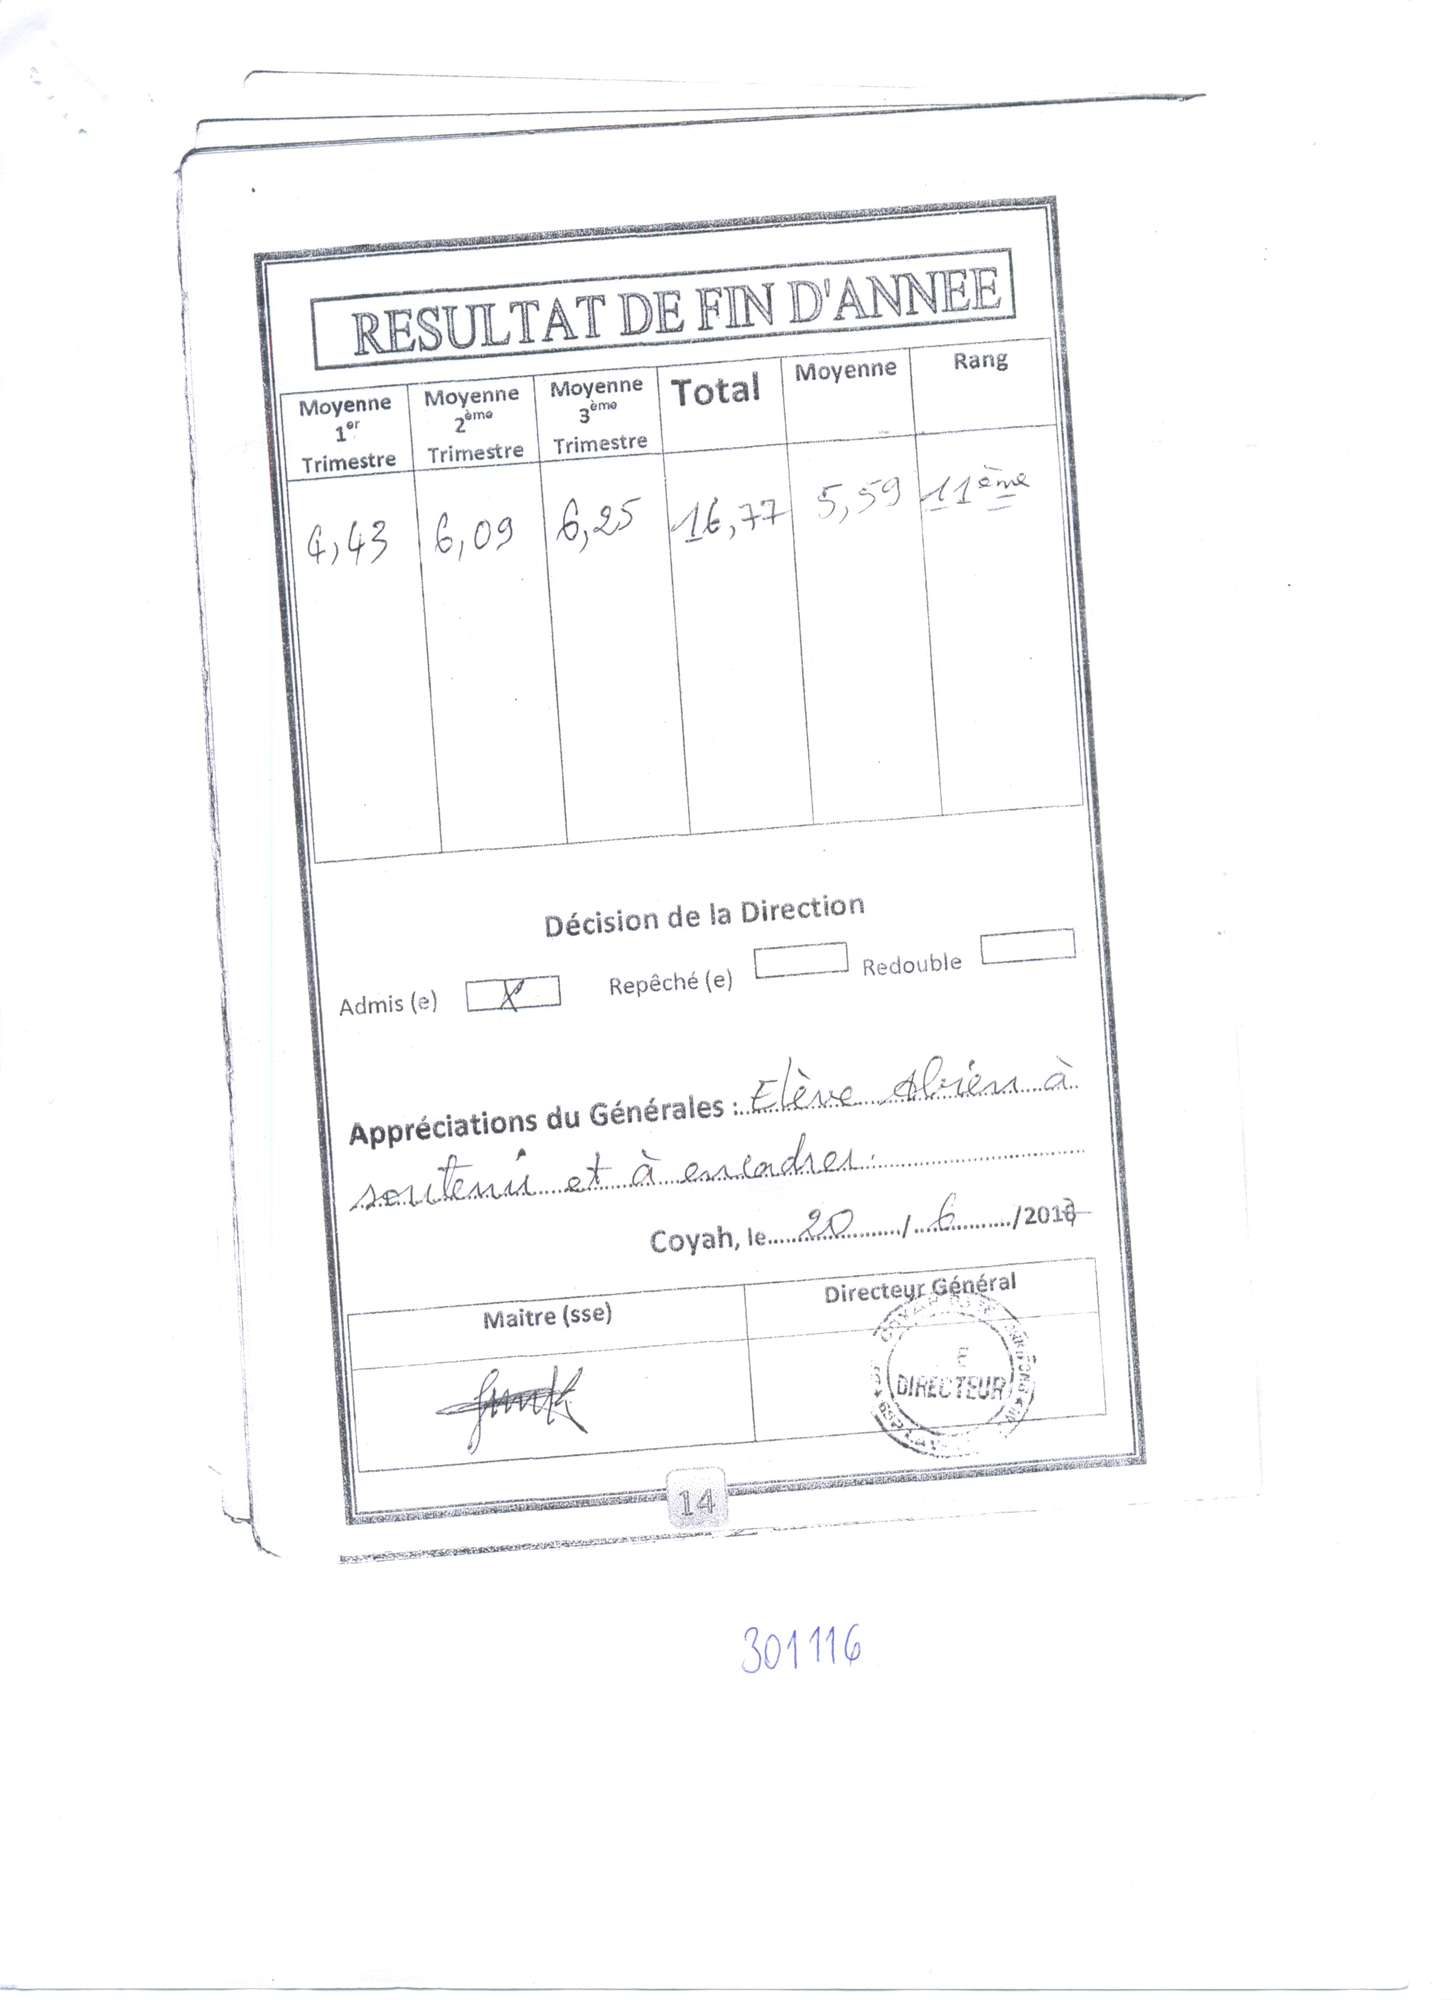 RESULTAT DE FIN D'ANNEE
Moyenne 1er Trimestre
Moyenne 2ème Trimestre
Moyenne 3ème Trimestre
Total
Moyenne
Rang
4,43 6,09 6,25 16,77 5,59 11ème
Décision de la Direction
Admis (e) X Repêché (e) Redouble
Appréciations du Générales : Elève à
soutenir et à encadrer.
Coyah, le 20 / 6 /201
Maitre (sse)
Directeur Général
DIRECTEUR
14
301116